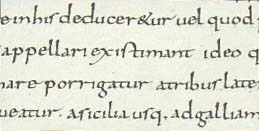 e inhis deducer&ur uel quod
appellari existimant ideo q
nare porrigatur atribus late
ueatur . asicilia usq, adgalliam